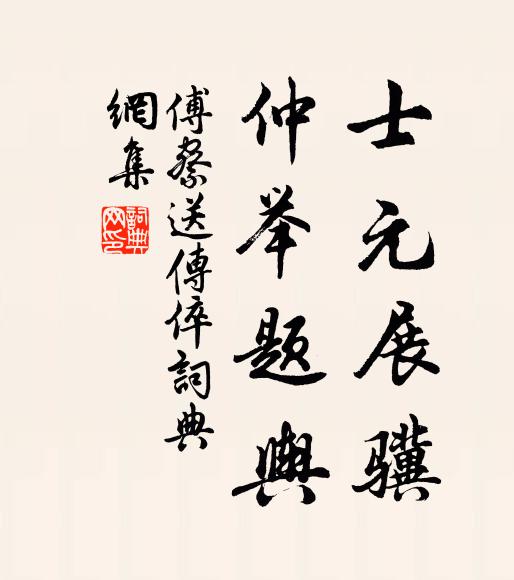 士元展骥
仲举题舆
傅察送傅倅词典
網集
詞典網印